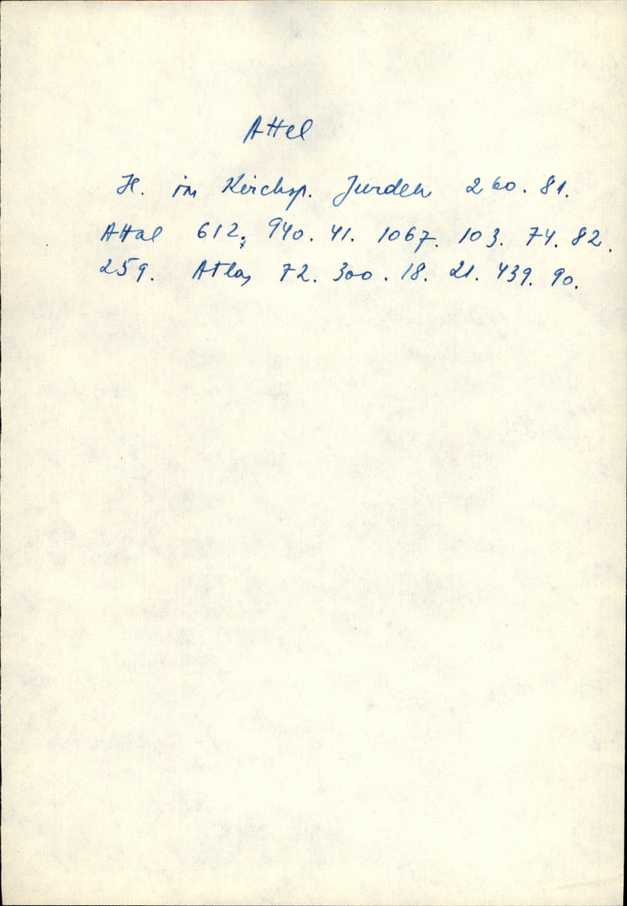 Attel
H. im Kirchsp. Jurden 260. 81.
Attal 612; 940. 41. 1067. 103. 74. 82.
259. Atlas 72. 300. 18. 21. 439. 90.